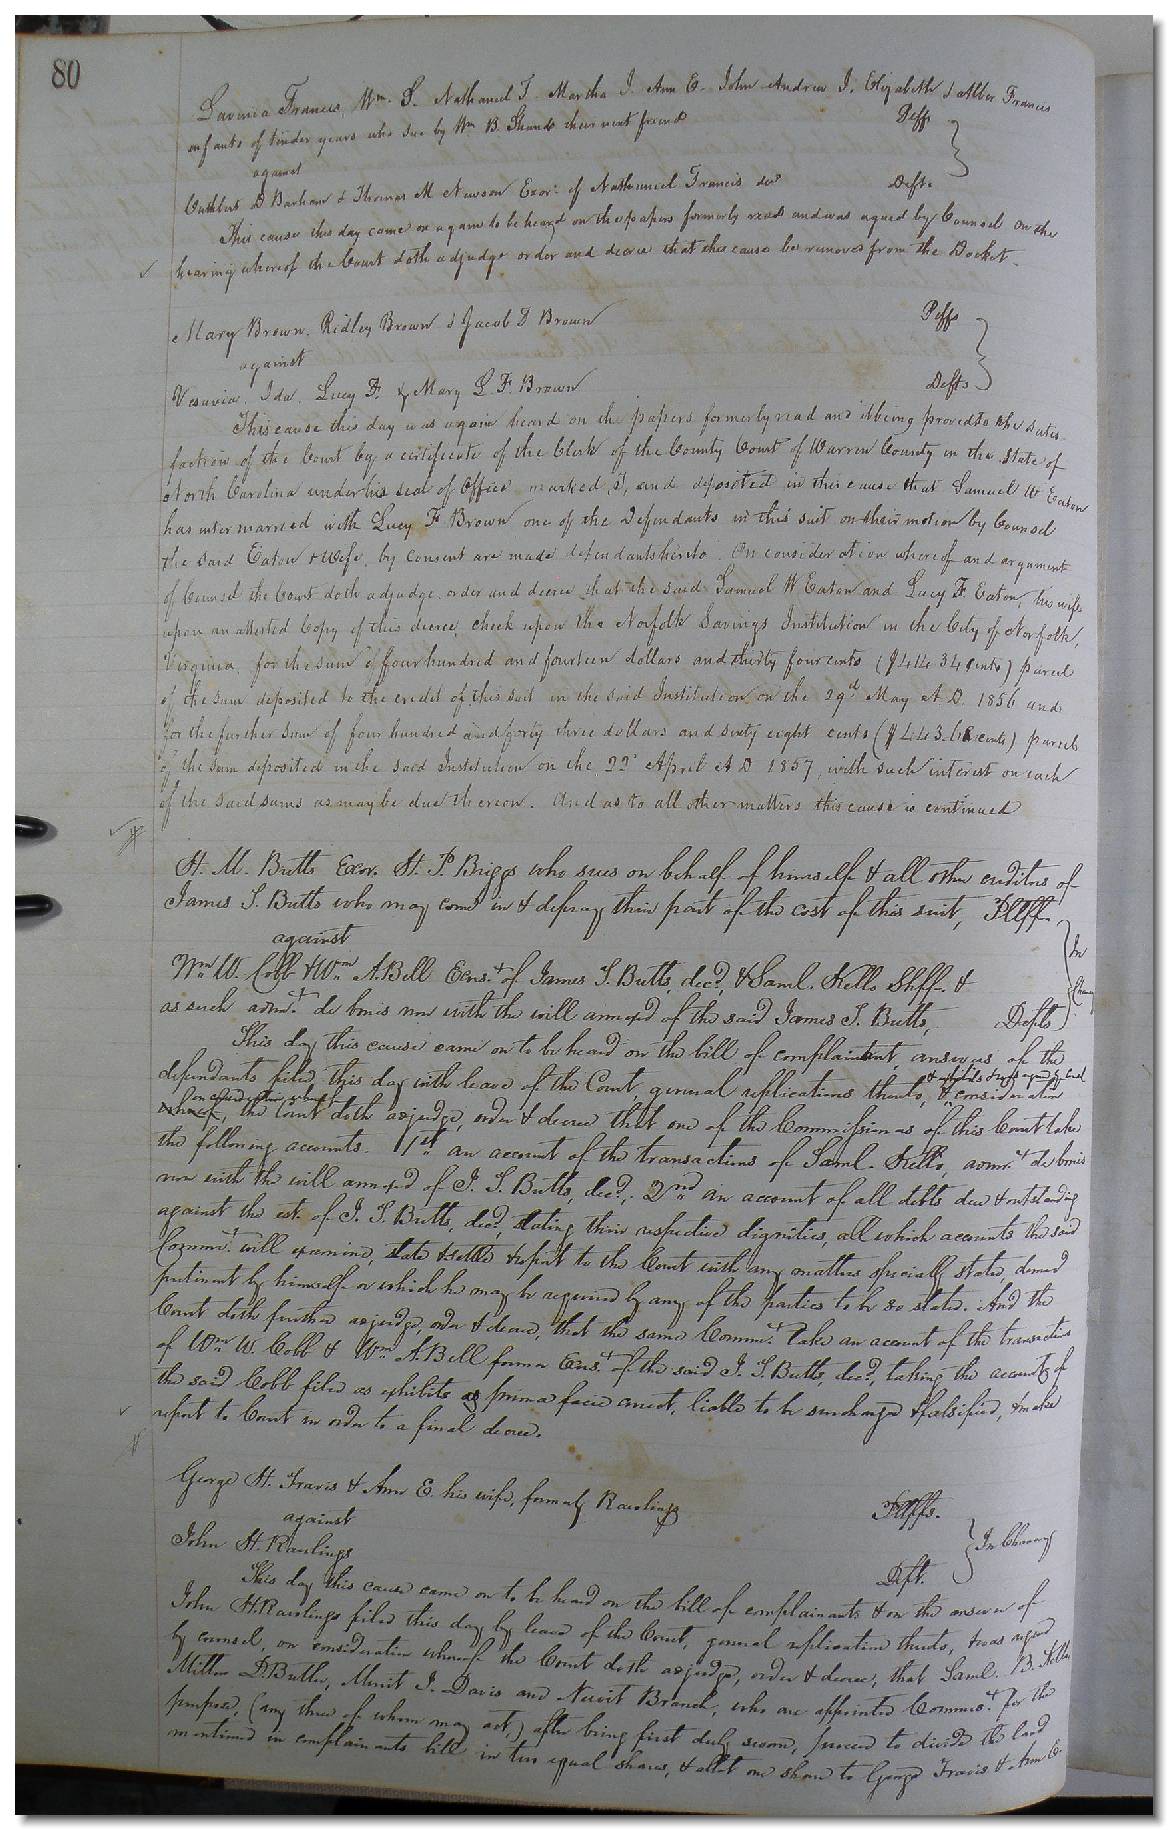 80
Lavinia Francis, Wm. S. Nathaniel T. Martha J. Ann E. John Andrew J, Elizabeth & Albin Francis
infants of tender years who sue by Wm B. Shands their next friend Plffs
against
Cuthbert D Barham & Thomas M Newsom Exors of Nathaniel Francis decd Deft.
This cause this day came on again to be heard on the papers formerly read and was argued by Counsel on the
hearing whereof the Court doth adjudge order and decree that this cause be removed from the Docket.
Mary Brown, Ridley Brown & Jacob D Brown Plffs
against
Vesuvia, Ida, Lucy F. & Mary L. F. Brown Defts
This cause this day was again heard on the papers formerly read and it being proved to the satis-
faction of the Court by a certificate of the Clerk of the County Court of Warren County in the State of
North Carolina under his seal of Office marked S, and deposited in this cause that Samuel W Eaton
has intermarried with Lucy F Brown one of the Defendants in this suit on their motion by Counsel
the said Eaton & Wife, by consent are made defendants hereto. On consideration whereof and argument
of Counsel the Court doth adjudge order and decree that the said Samuel W Eaton and Lucy F Eaton, his wife
upon an attested Copy of this decree, check upon the Norfolk Savings Institution in the City of Norfolk,
Virginia, for the sum of four hundred and fourteen dollars and thirty four cents ($414 34 cents) parcel
of the sum deposited to the credit of this suit in the said Institution on the 29th May A D. 1856 and
for the further sum of four hundred and forty three dollars and sixty eight cents ($443.68 cents) parcel
of the sum deposited in the said Institution on the 22d April A D 1857, with such interest on each
of the said sums as may be due thereon. And as to all other matters this cause is continued
H. M. Butts Exor. H. P. Briggs who sues on behalf of himself & all other creditors of
James S. Butts who may come in & defray their part of the cost of this suit, Pltff.
against In
Wm W. Cobb & Wm A. Bell Exrs. of James S. Butts, decd, & Saml. Kello Shff. & Chancy
as such admr. de bonis non with the will annexed of the said James S. Butts, Defts
This day this cause came on to be heard on the bill of complaint, answers of the
defendants filed this day with leave of the Court, general replications thereto, & exhibits & was argued by Counsel
on consideration whereof, the Court doth adjudge, order & decree that one of the Commissioners of this Court take
the following accounts. 1st an account of the transactions of Saml. Kello, admr. de bonis
non with the will annexed of J. S. Butts, decd; 2nd an account of all debts due & outstanding
against the est. of J. S. Butts, decd, stating their respective dignities, all which accounts the said
Commr. will examine, state & settle & report to the Court with any matters specially stated, deemed
pertinent by himself or which he may be required by any of the parties to be so stated. And the
Court doth further adjudge, order & decree, that the same Commr. take an account of the transactions
of Wm W. Cobb & Wm A. Bell former Exrs. of the said J. S. Butts, decd, taking the accounts of
the said Cobb filed as exhibits as prima facie correct, liable to be surcharged & falsified, & make
report to Court in order to a final decree.
George H. Travis & Ann E. his wife, formerly Rawlings Pltffs.
against In Chancery
John H. Rawlings Deft.
This day this cause came on to be heard on the bill of complainants & on the answer of
John H. Rawlings filed this day by leave of the Court, general replication thereto, & was argued
by counsel, on consideration whereof the Court doth adjudge, order & decree, that Saml. B. Kello
Milton D. Butler, Merit J. Davis and Newit Branch, who are appointed Commrs. for the
purpose, (any three of whom may act) after being first duly sworn, proceed to divide the land
mentioned in complainants bill in two equal shares, & allot one share to George Travis & Ann E.